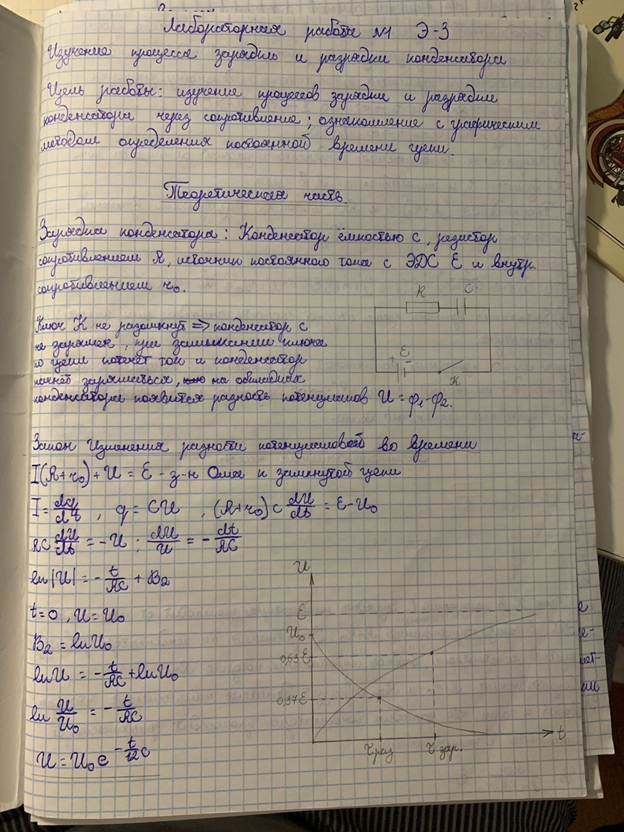 Лабораторная работа №1 Э-3
Изучение процесса зарядки и разрядки конденсатора
Цель работы: изучение процессов зарядки и разрядки
конденсатора через сопротивление; ознакомление с графическим
методом определения постоянной времени цепи.
Теоретическая часть
Зарядка конденсатора: Конденсатор ёмкостью C, резистор
сопротивлением R, источник постоянного тока с ЭДС Ɛ и внутр.
сопротивлением r₀.
R C
Ключ К не разомкнут => конденсатор C
не заряжен, при замыкании ключа
по цепи потечёт ток и конденсатор
Ɛ
начнёт заряжаться, на обкладках
К
конденсатора появится разность потенциалов U = φ₁-φ₂.
Закон изменения разности потенциалов во времени
I(R+r₀)+U = Ɛ - з-н Ома к замкнутой цепи
I = dq/dt , q = CU , (R+r₀)C dU/dt = Ɛ-U₀
RC dU/dt = -U ; dU/U = - dt/RC
ln|U| = - t/RC + B₂
t=0, U=U₀
B₂ = lnU₀
lnU = - t/RC + lnU₀
ln U/U₀ = - t/RC
U = U₀ e^(-t/RC)
U
Ɛ
U₀
0,63 Ɛ
0,37 Ɛ
τ раз τ зар. t